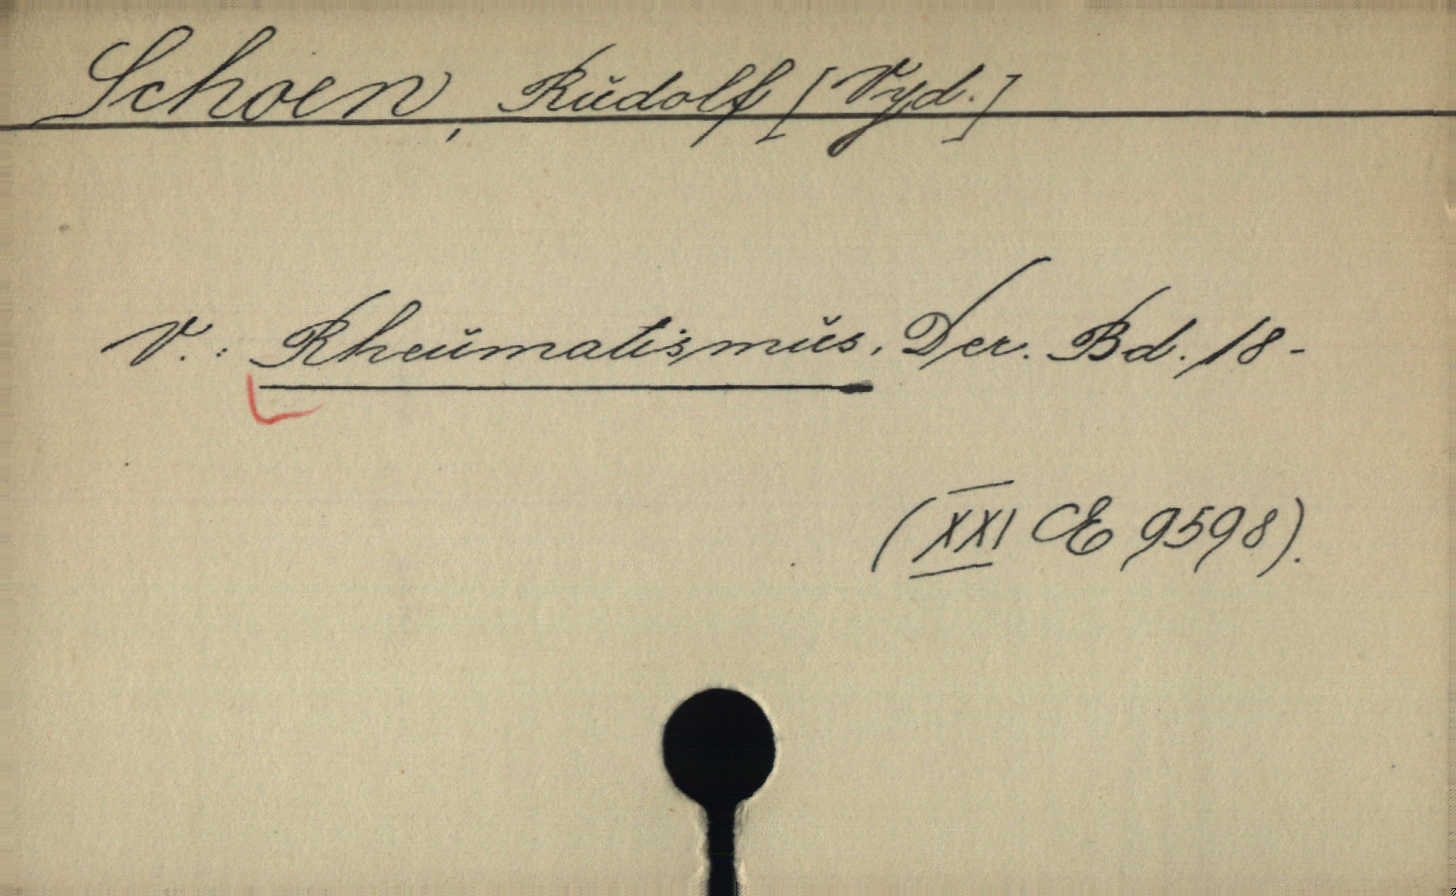 Schoen, Rudolf [Vyd.]
V.: Rheumatismus, Der. Bd. 18-
(XXI E 9598).